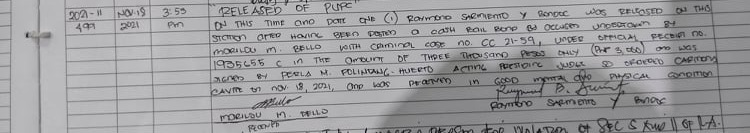 2021-11 NOV. 18 3:53 "RELEASED OF PUPC"
499 2021 PM ON THIS TIME AND DATE ONE (1) RAYMOND SARMIENTO Y BONDOC WAS RELEASED ON THIS
STATION AFTER HAVING BEEN POSTED A CASH BAIL BOND BY ACCUSED UNDERTAKEN BY
MORILOU M. BELLO WITH CRIMINAL CASE NO. CC 21-59, UNDER OFFICIAL RECEIPT NO.
1935655 C IN THE AMOUNT OF THREE THOUSAND PESOS ONLY (PHP 3,000) AND WAS
SIGNED BY PERLA M. POLINTANG-HUERTO ACTING PRESIDING JUDGE SO ORDERED CARMONA
CAVITE ON NOV. 18, 2021, AND WAS RECEIVED IN GOOD MENTAL AND PHYSICAL CONDITION
MORILOU M. BELLO RAYMOND SARMIENTO Y BONDOC
RECEIVER
VIOLATION OF SEC 5 AND 11 OF R.A.